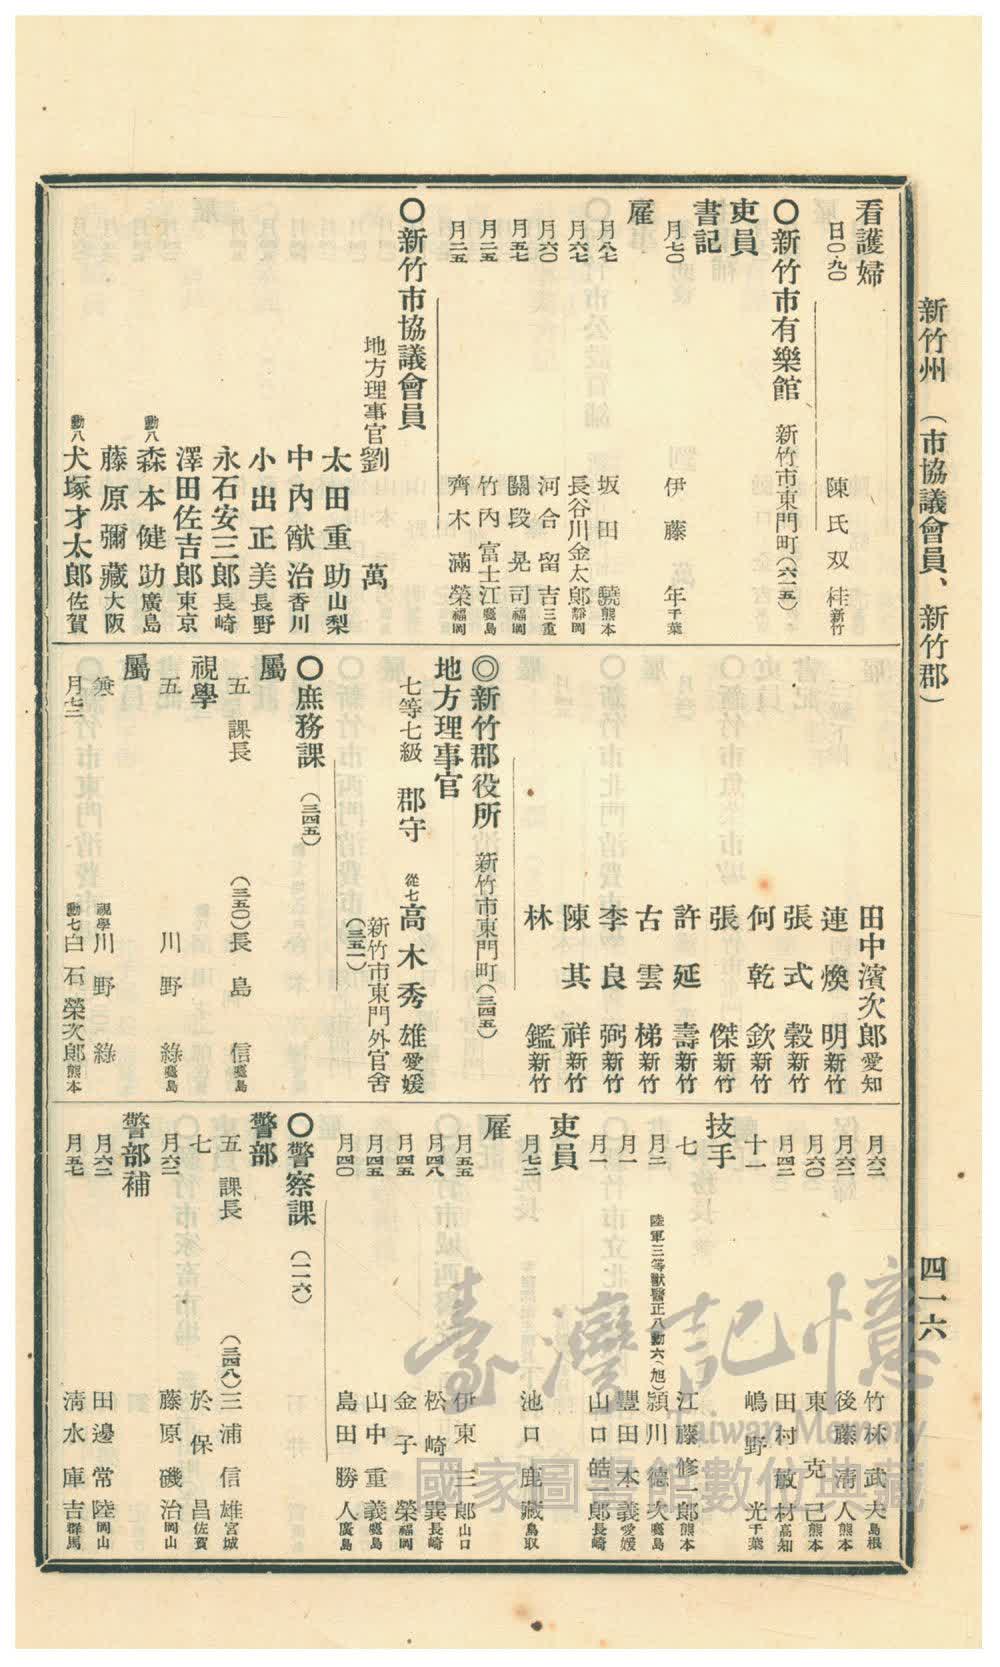 新竹州 （市協議會員、新竹郡）
四一六
看護婦
日〇・九〇 陳氏双桂 新竹
〇新竹市有樂館 新竹市東門町(六一五)
吏員
書記
月七〇 伊藤萬年 千葉
雇
月八七 坂田驍 熊本
月六七 長谷川金太郎 靜岡
月六〇 河合留吉 三重
月五七 關段晃司 福岡
月二五 竹内富士江 鹿島
月二五 齊木滿榮 福岡
〇新竹市協議會員
地方理事官 劉萬
太田重助 山梨
中内猷治 香川
小出正美 長野
永石安三郎 長崎
澤田佐吉郎 東京
勳八 森本健助 廣島
藤原彌藏 大阪
勳八 犬塚才太郎 佐賀
田中濱次郎 愛知
連煥明 新竹
張式穀 新竹
何乾欽 新竹
張傑 新竹
許延壽 新竹
古雲梯 新竹
李良弼 新竹
陳其祥 新竹
林鑑 新竹
◎新竹郡役所 新竹市東門町(三四五)
地方理事官
七等七級 郡守 從七 高木秀雄 愛媛
新竹市東門外官舍
(三五一)
〇庶務課 (三四五)
屬
五 課長 (三五〇)長島信 鹿島
視學
五 川野綠 鹿島
屬
兼 視學 川野綠
月七三 勳七 白石榮次郎 熊本
月六二 竹林武夫 島根
月六二 後藤清人 熊本
月六〇 東克己 熊本
月四二 田村敏材 高知
十一 嶋野光 千葉
技手
七 江藤修一郎 熊本
月二 陸軍三等獸醫正八勳六(旭) 頴川德次 鹿島
月一 豐田本義 愛媛
月一 山口皓郎 長崎
吏員
月七二 池口鹿藏 鳥取
雇
月五五 伊東三郎 山口
月四八 松崎巽 長崎
月四五 金子榮 福岡
月四五 山中重義 鹿島
月四〇 島田勝人 廣島
〇警察課 (二一六)
警部
五 課長 (三四八)三浦信雄 宮城
七 於保昌 佐賀
月六二 藤原磯治 岡山
警部補
月六二 田邊常陸 岡山
月五七 清水庫吉 群馬
臺灣記憶
Taiwan Memory
國家圖書館數位典藏